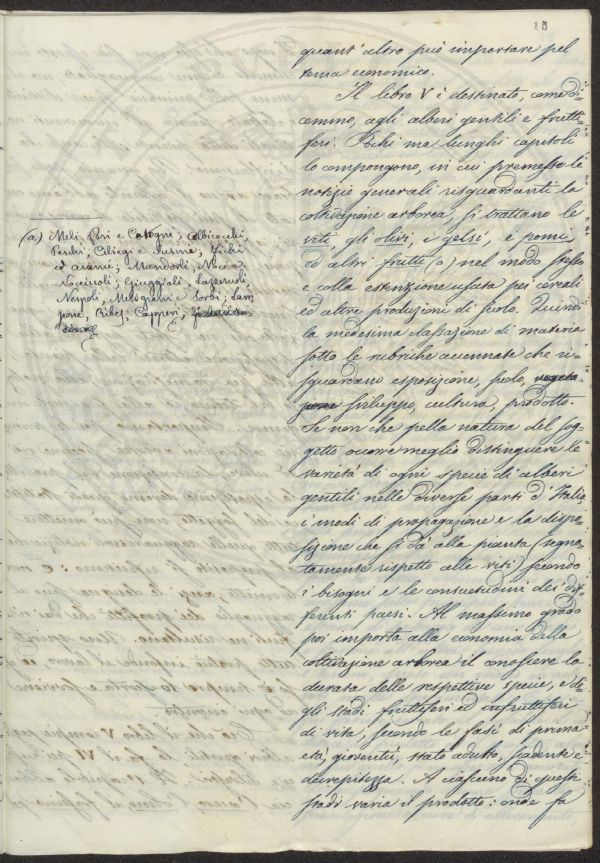 quant'altro può importare pel
tema economico.
Il libro V è destinato, come di-
cemmo, agli alberi gentili e frutti-
feri. Pochi ma lunghi capitoli
lo compongono, in cui premesse le
notizie generali risguardanti la
coltivazione arborea, si trattano le
viti, gli olivi, i gelsi, i pomi,
ed altri frutti (a) nel modo stesso
e colla estenzione usata pei cereali
ed altre produzioni di suolo. Quindi
la medesima classazione di materia
sotto le rubriche accennate che ri-
sguardano esposizione, suolo, vegeta-
zione sviluppo, cultura, prodotto.
Se non che pella natura del sog-
getto occorre meglio distinguere le
varietà di ogni specie di alberi
gentili nelle diverse parti d'Italia
i modi di propagazione e la dispo-
sizione che si dà alla pianta (segna-
tamente rispetto alle viti) secondo
i bisogni e le consuetudini dei dif-
ferenti paesi. Al massimo grado
poi importa alla economia della
coltivazione arborea il conoscere la
durata delle respettive specie, e di-
gli stadi fruttiferi ed infruttiferi
di vita, secondo le fasi di prima
età, gioventù, stato adulto, scadente e
decrepitezza. A ciascuno di questi
stadi varia il prodotto: onde fa
(a) Meli, Peri e Cotogni; Albicocchi,
Peschi, Ciliegi e Susini; Fichi
ed aranci; Mandorli, Noci e
Nocciuoli; Giuggioli, Lazzeruoli,
Nespoli, Melogranni e Sorbi; Lam-
pone, Ribes, Capperi,